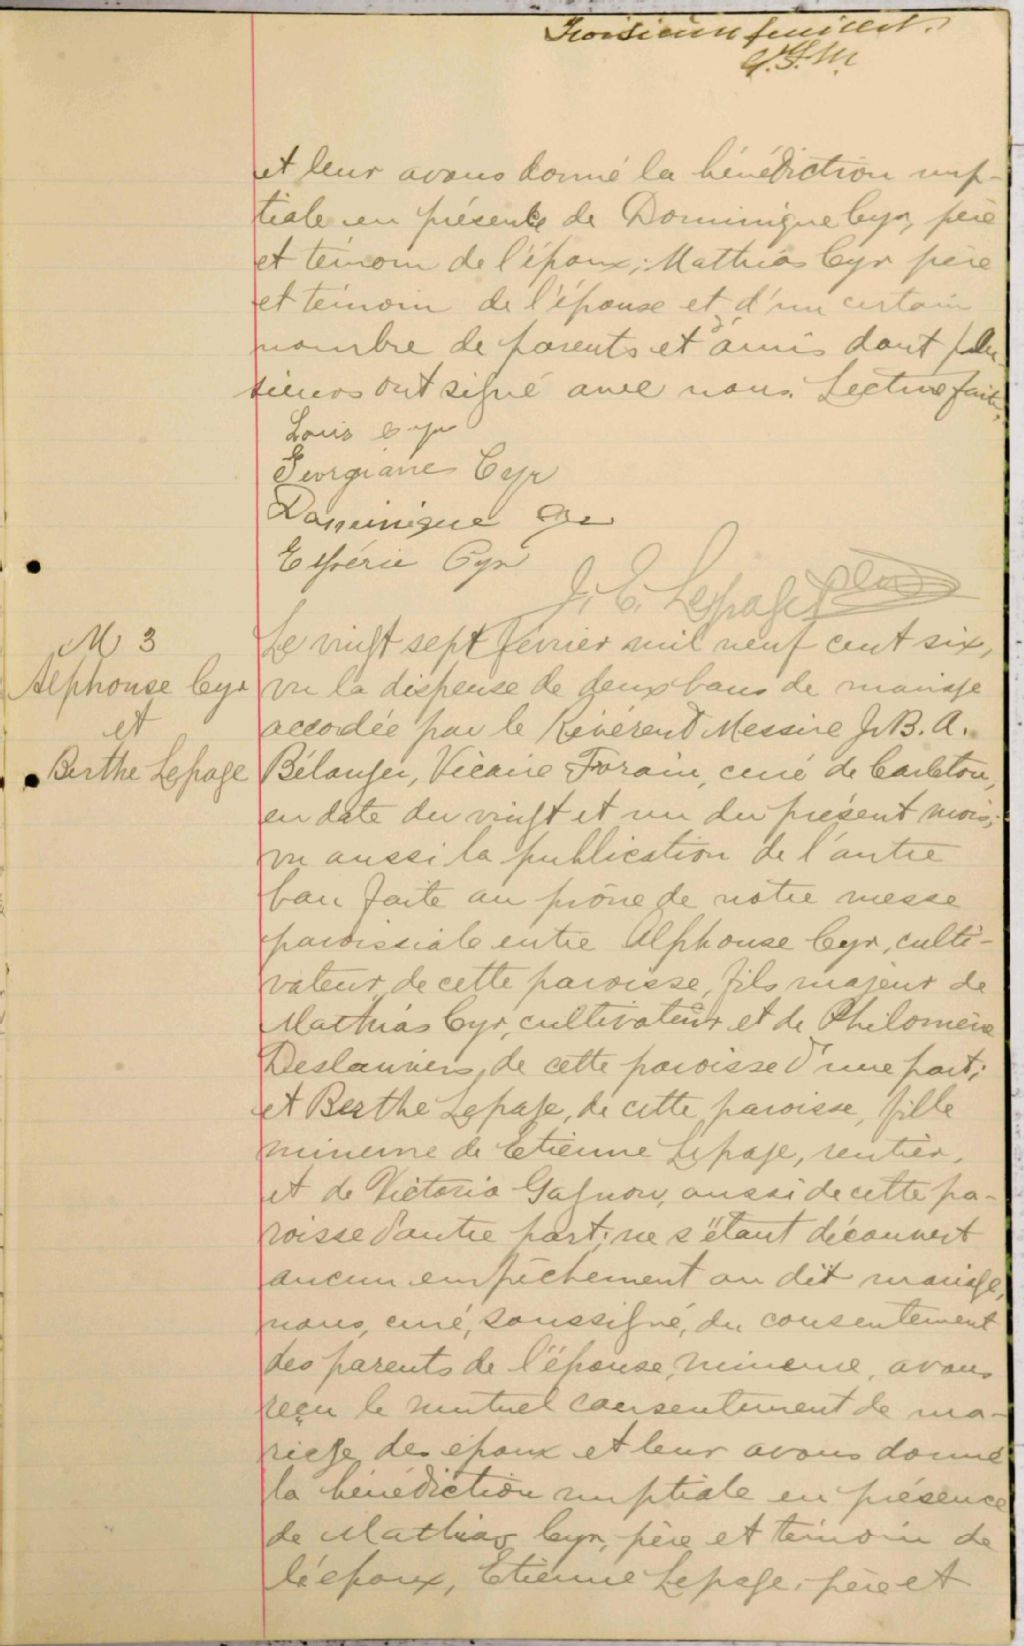 Troisième feuillet.
et leur avons donné la bénédiction nup-
tiale en présence de Dominique Cyr, père
et témoin de l'époux; Mathias Cyr père
et témoin de l'épouse et d'un certain
nombre de parents et d'amis dont plu-
sieurs ont signé avec nous. Lecture faite,
Louis Cyr
Georgianes Cyr
Dominique Cyr
Exférie Cyr
J. E. Lepage ptre
M 3
Alphonse Cyr
et
Berthe Lepage
Le vingt sept février mil neuf cent six,
vu la dispense de deux bans de mariage
accordée par le Révérend Messire J. B. A.
Bélanger, Vicaire Forain, curé de Carleton,
en date du vingt et un du présent mois;
vu aussi la publication de l'autre
ban faite au prône de notre messe
paroissiale entre Alphonse Cyr, culti-
vateur, de cette paroisse, fils majeur de
Mathias Cyr, cultivateur et de Philomène
Deslauriers, de cette paroisse d'une part;
et Berthe Lepage, de cette paroisse, fille
mineure de Etienne Lepage, rentier,
et de Victoria Gagnon, aussi de cette pa-
roisse d'autre part; ne s'étant découvert
aucun empêchement au dit mariage,
nous, curé, soussigné, du consentement
des parents de l'épouse, mineure, avons
reçu le mutuel consentement de ma-
riage des époux et leur avons donné
la bénédiction nuptiale en présence
de Mathias Cyr, père et témoin de
l'époux, Etienne Lepage, père et